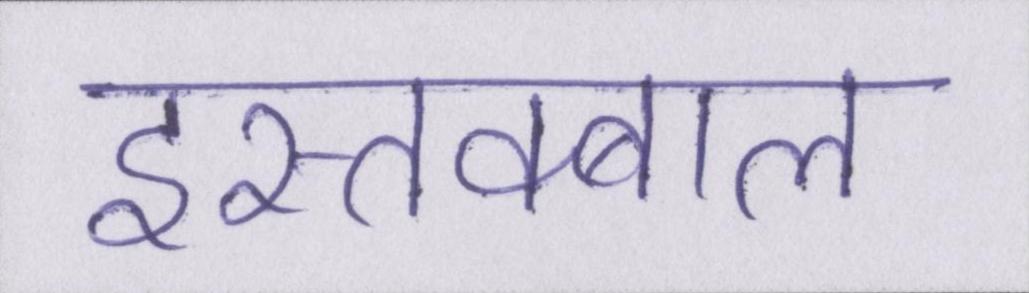 इस्तक्बाल